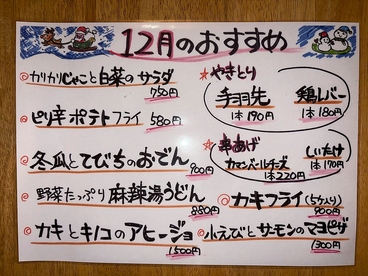 12月のおすすめ
◎カリカリじゃこと白菜のサラダ
750円
◎ピリ辛ポテトフライ 580円
◎冬瓜とてびちのおでん
900円
◎野菜たっぷり麻辣湯うどん
880円
◎カキとキノコのアヒージョ
1500円
★やきとり
手羽先
1本190円
鶏レバー
1本180円
★串あげ
カマンベールチーズ
1本220円
しいたけ
1本170円
◎カキフライ(5ケ入り)
900円
◎小えびとサーモンのマヨピザ
1300円